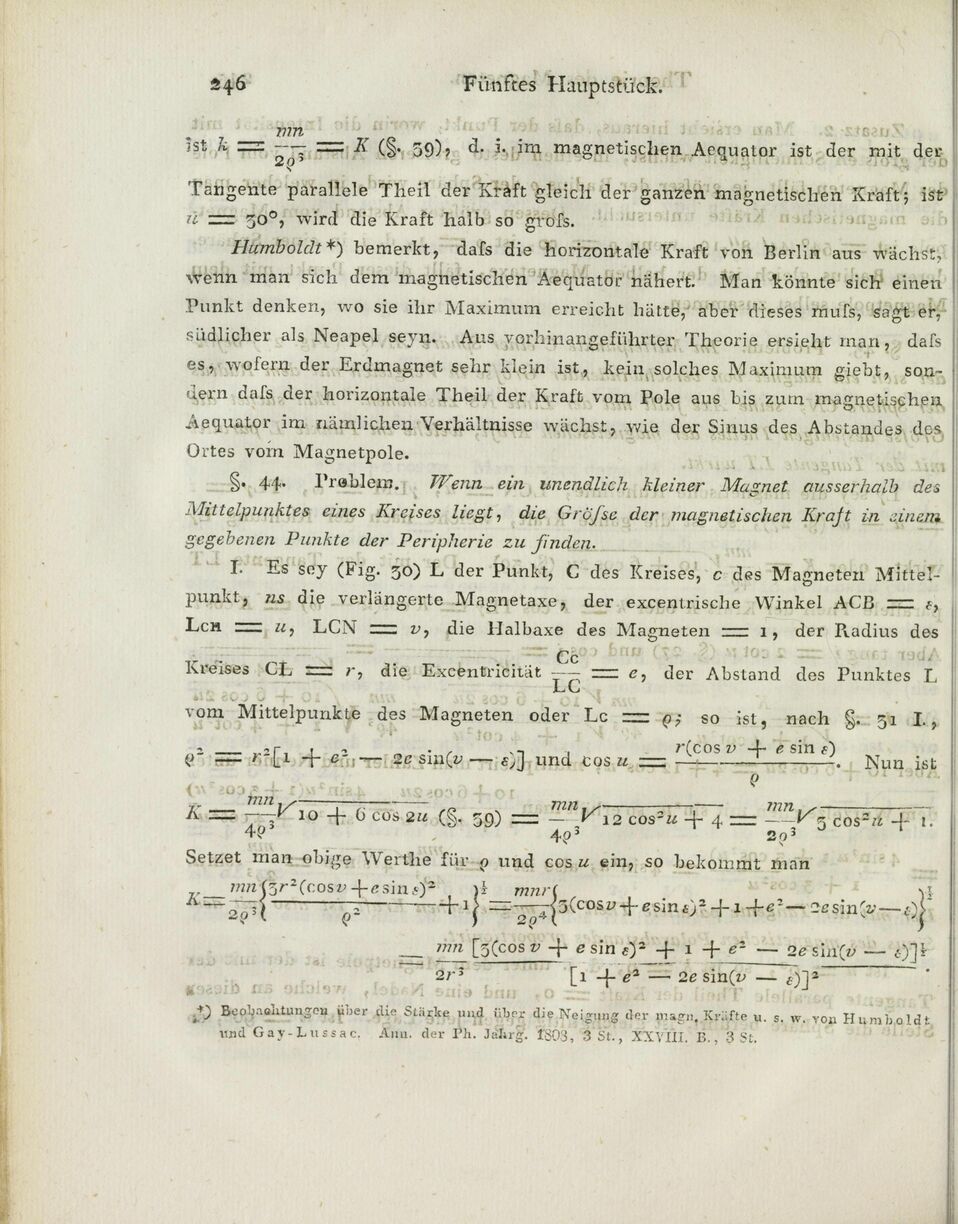 246 Fünftes Hauptstück.
ist k = mn/2ρ³ = K (§. 39), d. i. im magnetischen Aequator ist der mit der
Tangente parallele Theil der Kraft gleich der ganzen magnetischen Kraft; ist
u = 30°, wird die Kraft halb so groſs.
Humboldt *) bemerkt, daſs die horizontale Kraft von Berlin aus wächst,
wenn man sich dem magnetischen Aequator nähert. Man könnte sich einen
Punkt denken, wo sie ihr Maximum erreicht hätte, aber dieses muſs, sagt er,
südlicher als Neapel seyn. Aus vorhinangeführter Theorie ersieht man, daſs
es, wofern der Erdmagnet sehr klein ist, kein solches Maximum giebt, son-
dern daſs der horizontale Theil der Kraft vom Pole aus bis zum magnetischen
Aequator im nämlichen Verhältnisse wächst, wie der Sinus des Abstandes des
Ortes vom Magnetpole.
§. 44. Problem. Wenn ein unendlich kleiner Magnet ausserhalb des
Mittelpunktes eines Kreises liegt, die Gröſse der magnetischen Kraft in einem
gegebenen Punkte der Peripherie zu finden.
I. Es sey (Fig. 30) L der Punkt, C des Kreises, c des Magneten Mittel-
punkt, ns die verlängerte Magnetaxe, der excentrische Winkel ACB = ε,
Lcn = u, LCN = v, die Halbaxe des Magneten = 1, der Radius des
Kreises CL = r, die Excentricität Cc/LC = e, der Abstand des Punktes L
vom Mittelpunkte des Magneten oder Lc = ρ; so ist, nach §. 31 I.,
ρ² = r²[1 + e² — 2e sin(v — ε)] und cos u = r(cos v + e sin ε)/ρ. Nun ist
K = mn/4ρ³ √10 + 6 cos 2u (§. 39) = mn/4ρ³ √12 cos²u + 4 = mn/2ρ³ √3 cos²u + 1.
Setzet man obige Werthe für ρ und cos u ein, so bekommt man
K = mn/2ρ³ {3r²(cos v + e sin ε)²/ρ² + 1}½ = mnr/2ρ⁴ {3(cos v + e sin ε)² + 1 + e² — 2e sin(v — ε)}½
= mn/2r³ [3(cos v + e sin ε)² + 1 + e² — 2e sin(v — ε)]½/[1 + e² — 2e sin(v — ε)]² .
*) Beobachtungen über die Stärke und über die Neigung der magn. Kräfte u. s. w. von Humboldt
und Gay-Lussac. Ann. der Ph. Jahrg. 1808, 3 St., XXVIII. B., 3 St.